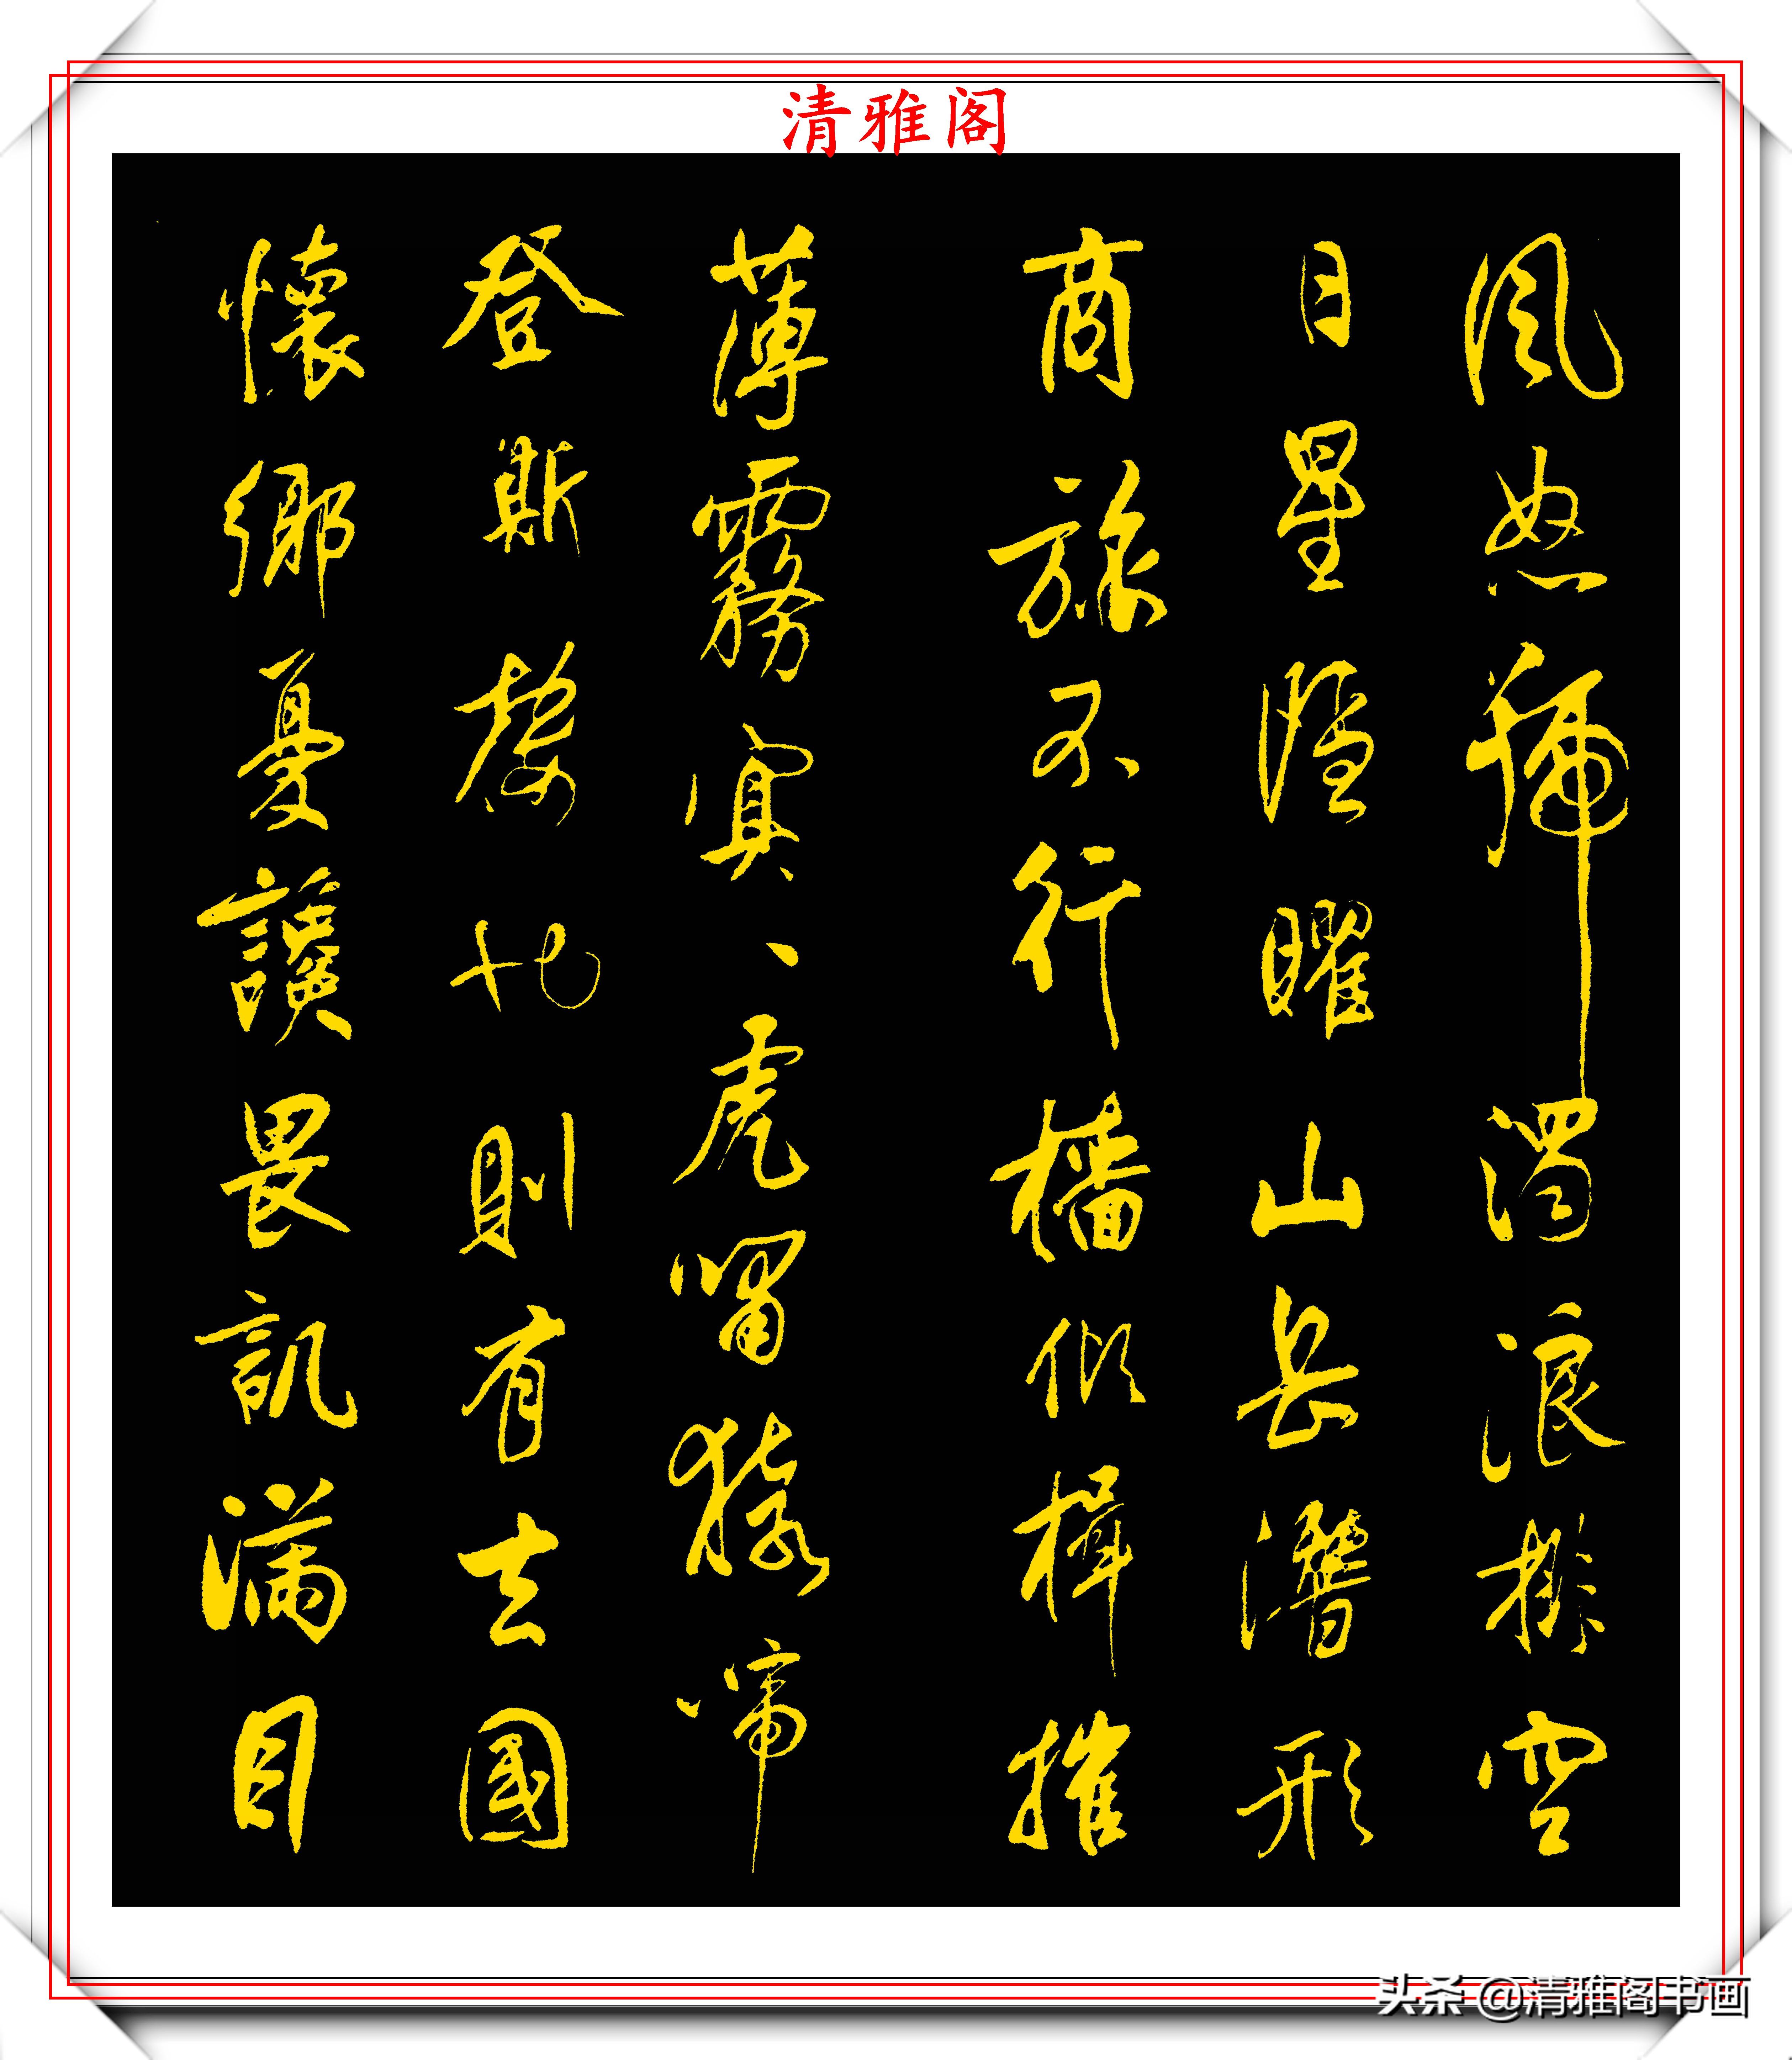 清雅阁
風怒號濁浪排空
日星隱曜山岳潛形
商旅不行檣傾楫摧
薄霧冥、虎嘯猿啼
登斯樓也則有去國
懷鄉憂讒畏譏滿目
头条 @清雅阁书画